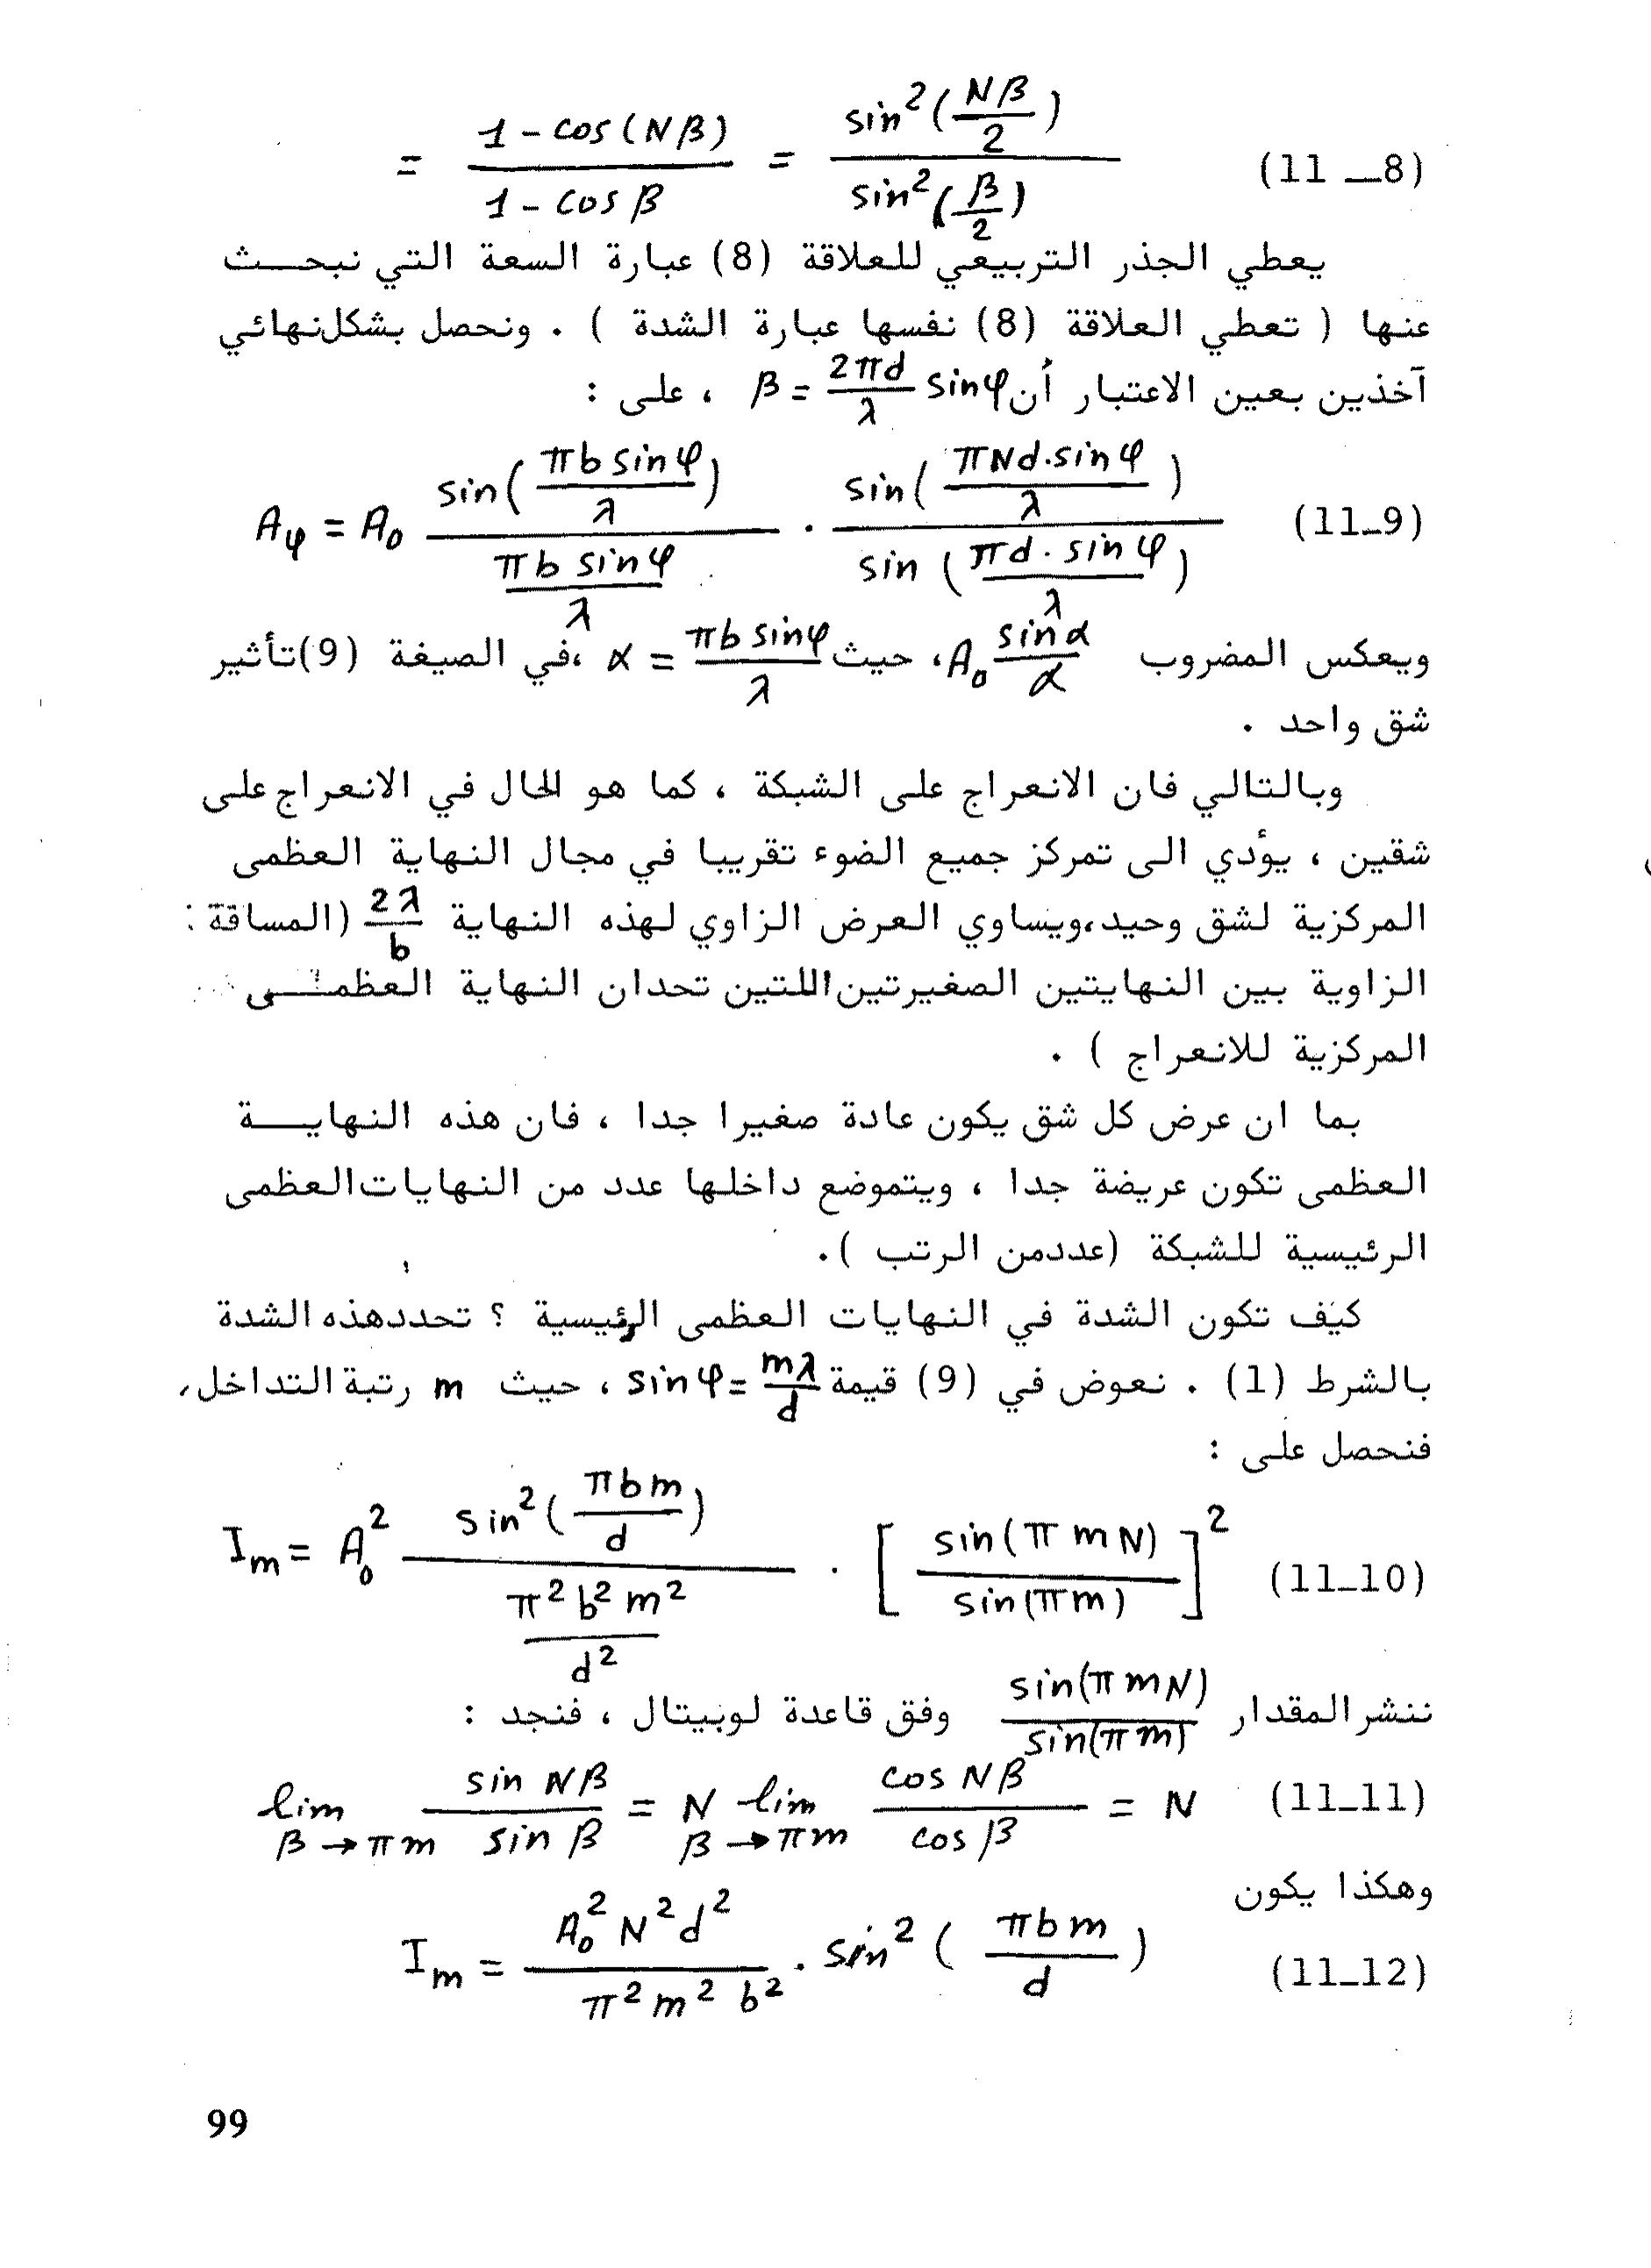 = \frac{1 - cos(Nβ)}{1 - cos β} = \frac{sin^2(\frac{Nβ}{2})}{sin^2(\frac{β}{2})} (11_8)
يعطي الجذر التربيعي للعلاقة (8) عبارة السعة التي نبحـــث
عنها ( تعطي العلاقة (8) نفسها عبارة الشدة ) . ونحصل بشكل نهائي
آخذين بعين الاعتبار أن β = \frac{2πd}{λ} sin φ ، على :
A_φ = A_0 \frac{sin(\frac{πb sin φ}{λ})}{\frac{πb sin φ}{λ}} . \frac{sin(\frac{πNd.sin φ}{λ})}{sin(\frac{πd.sin φ}{λ})} (11_9)
ويعكس المضروب A_0 \frac{sin α}{α}، حيث α = \frac{πb sin φ}{λ} ،في الصيغة (9) تأثير
شق واحد .
وبالتالي فان الانعراج على الشبكة ، كما هو الحال في الانعراج على
شقين ، يؤدي الى تمركز جميع الضوء تقريبا في مجال النهاية العظمى
المركزية لشق وحيد،ويساوي العرض الزاوي لهذه النهاية \frac{2λ}{b} (المسافة :
الزاوية بين النهايتين الصغيرتين اللتين تحدان النهاية العظمـــى
المركزية للانعراج ) .
بما ان عرض كل شق يكون عادة صغيرا جدا ، فان هذه النهايـــة
العظمى تكون عريضة جدا ، ويتموضع داخلها عدد من النهايات العظمى
الرئيسية للشبكة (عدد من الرتب ).
كيف تكون الشدة في النهايات العظمى الرئيسية ؟ تحدد هذه الشدة
بالشرط (1) . نعوض في (9) قيمة sin φ = \frac{mλ}{d} ، حيث m رتبة التداخل،
فنحصل على :
I_m = A_0^2 \frac{sin^2(\frac{πbm}{d})}{\frac{π^2 b^2 m^2}{d^2}} . [\frac{sin(π m N)}{sin(π m)}]^2 (11_10)
ننشر المقدار \frac{sin(π m N)}{sin(π m)} وفق قاعدة لوبيتال ، فنجد :
lim_{β → π m} \frac{sin Nβ}{sin β} = N lim_{β → π m} \frac{cos Nβ}{cos β} = N (11_11)
وهكذا يكون
I_m = \frac{A_0^2 N^2 d^2}{π^2 m^2 b^2} . sin^2(\frac{πbm}{d}) (11_12)
99